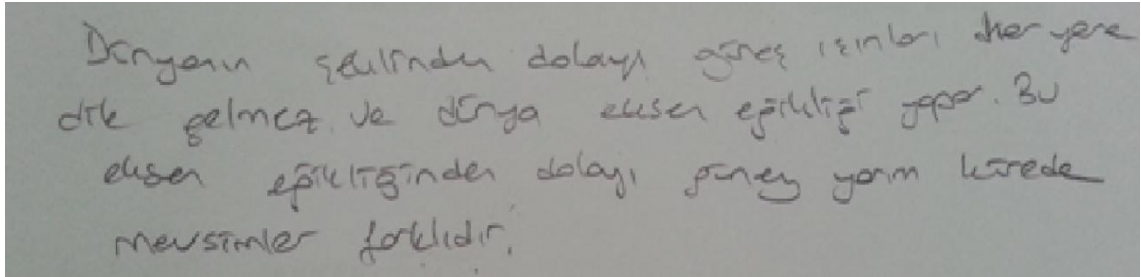 Dünyanın şeklinden dolayı güneş ışınları her yere
dik gelmez ve dünya eksen eğikliği yapar. Bu
eksen eğikliğinden dolayı güney yarım kürede
mevsimler farklıdır.